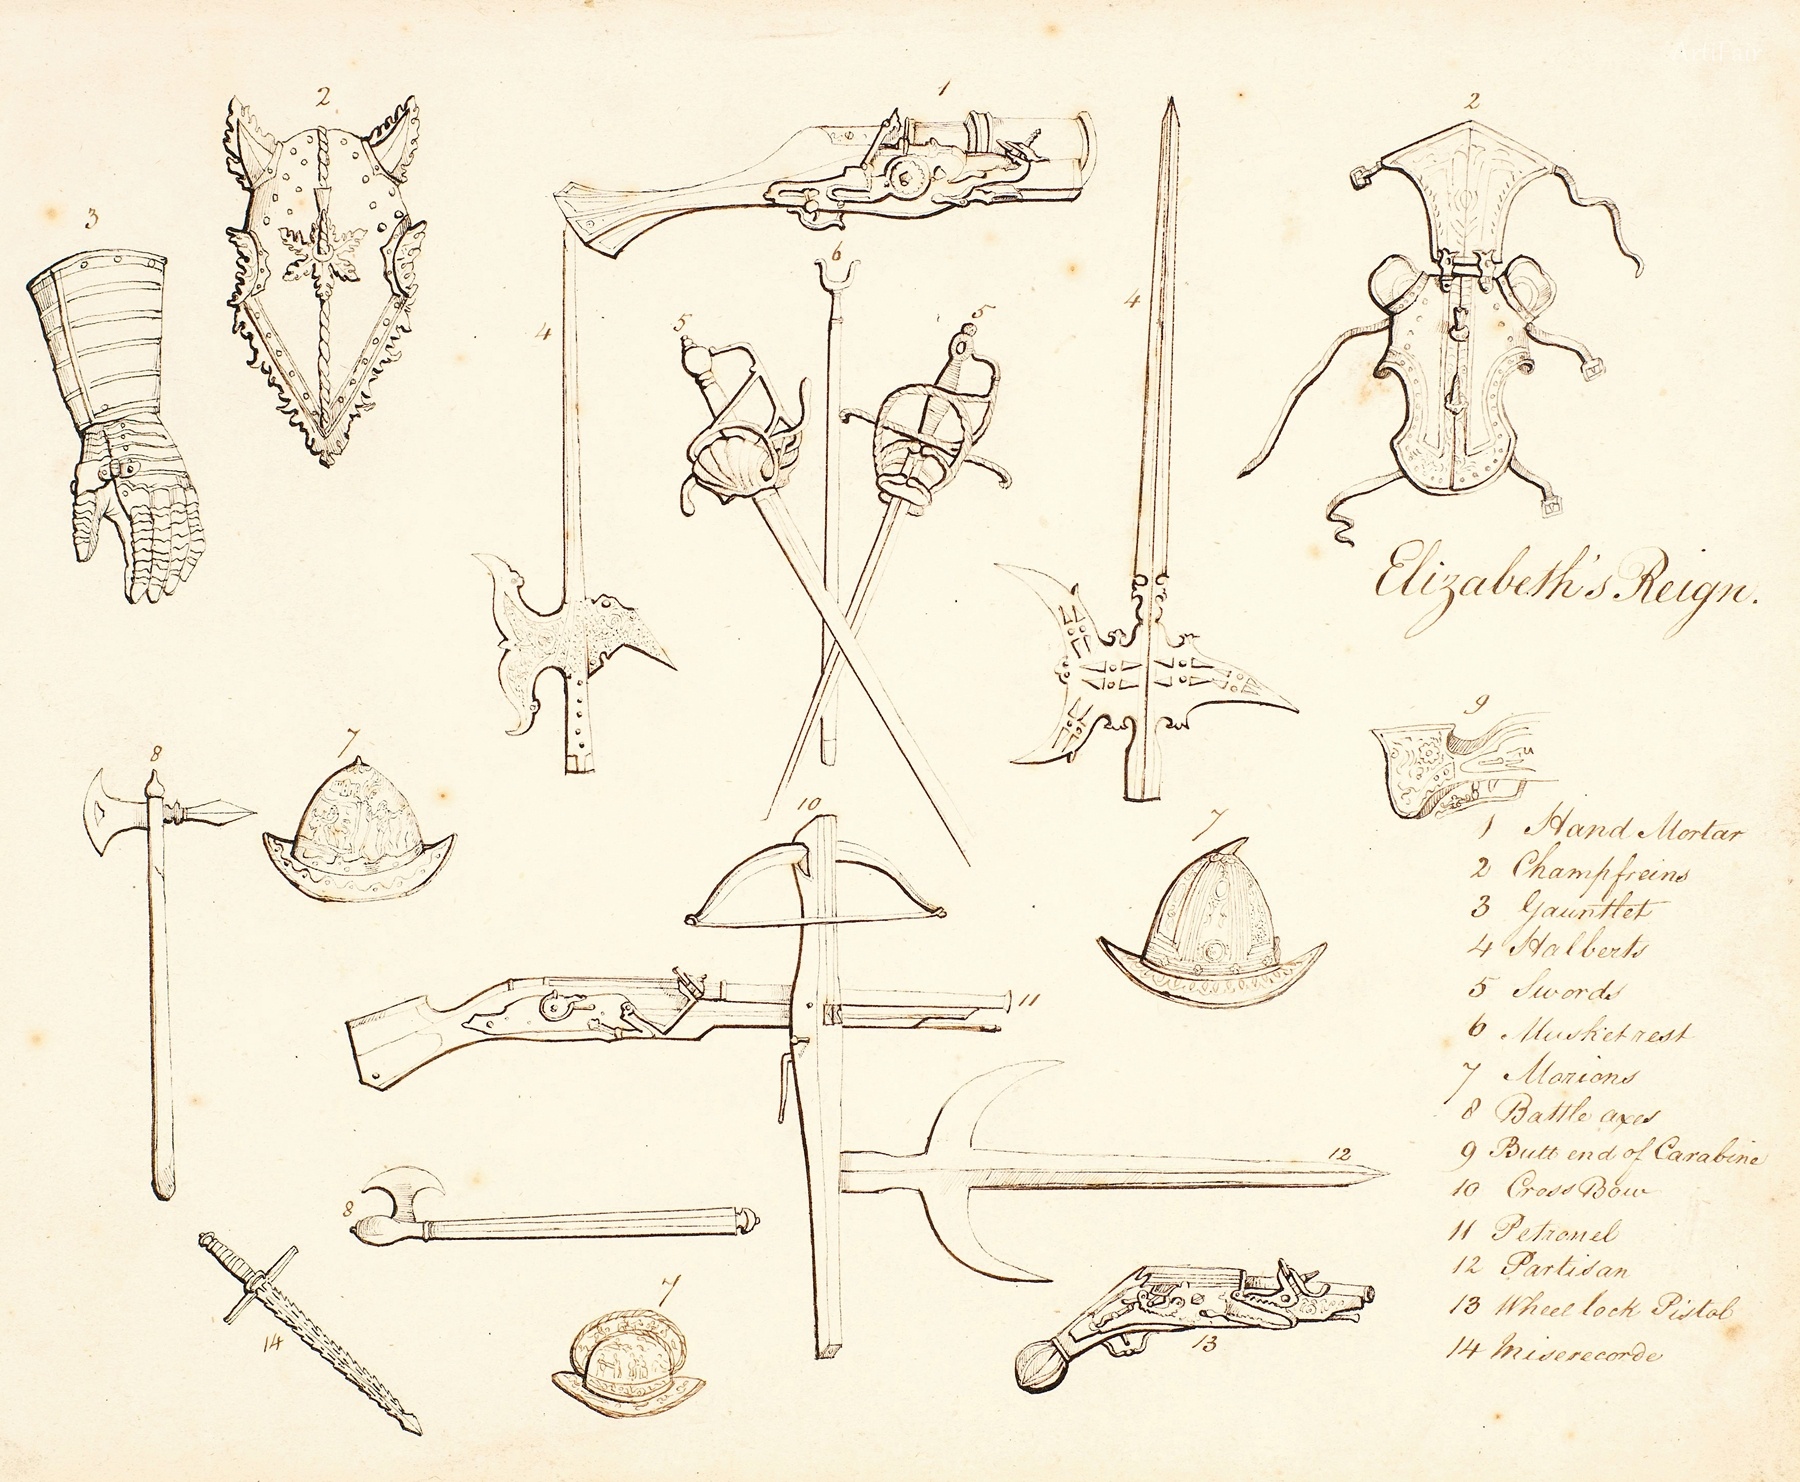 2
1
2
3
6
4
4
5
5
Elizabeth's Reign.
9
8
7
10
7
11
12
8
14
7
13
1 Hand Mortar
2 Champfreins
3 Gauntlet
4 Halberts
5 Swords
6 Musket rest
7 Morions
8 Battle axes
9 Butt end of Carabine
10 Cross Bow
11 Petronel
12 Partisan
13 Wheel lock Pistol
14 Miserecorde